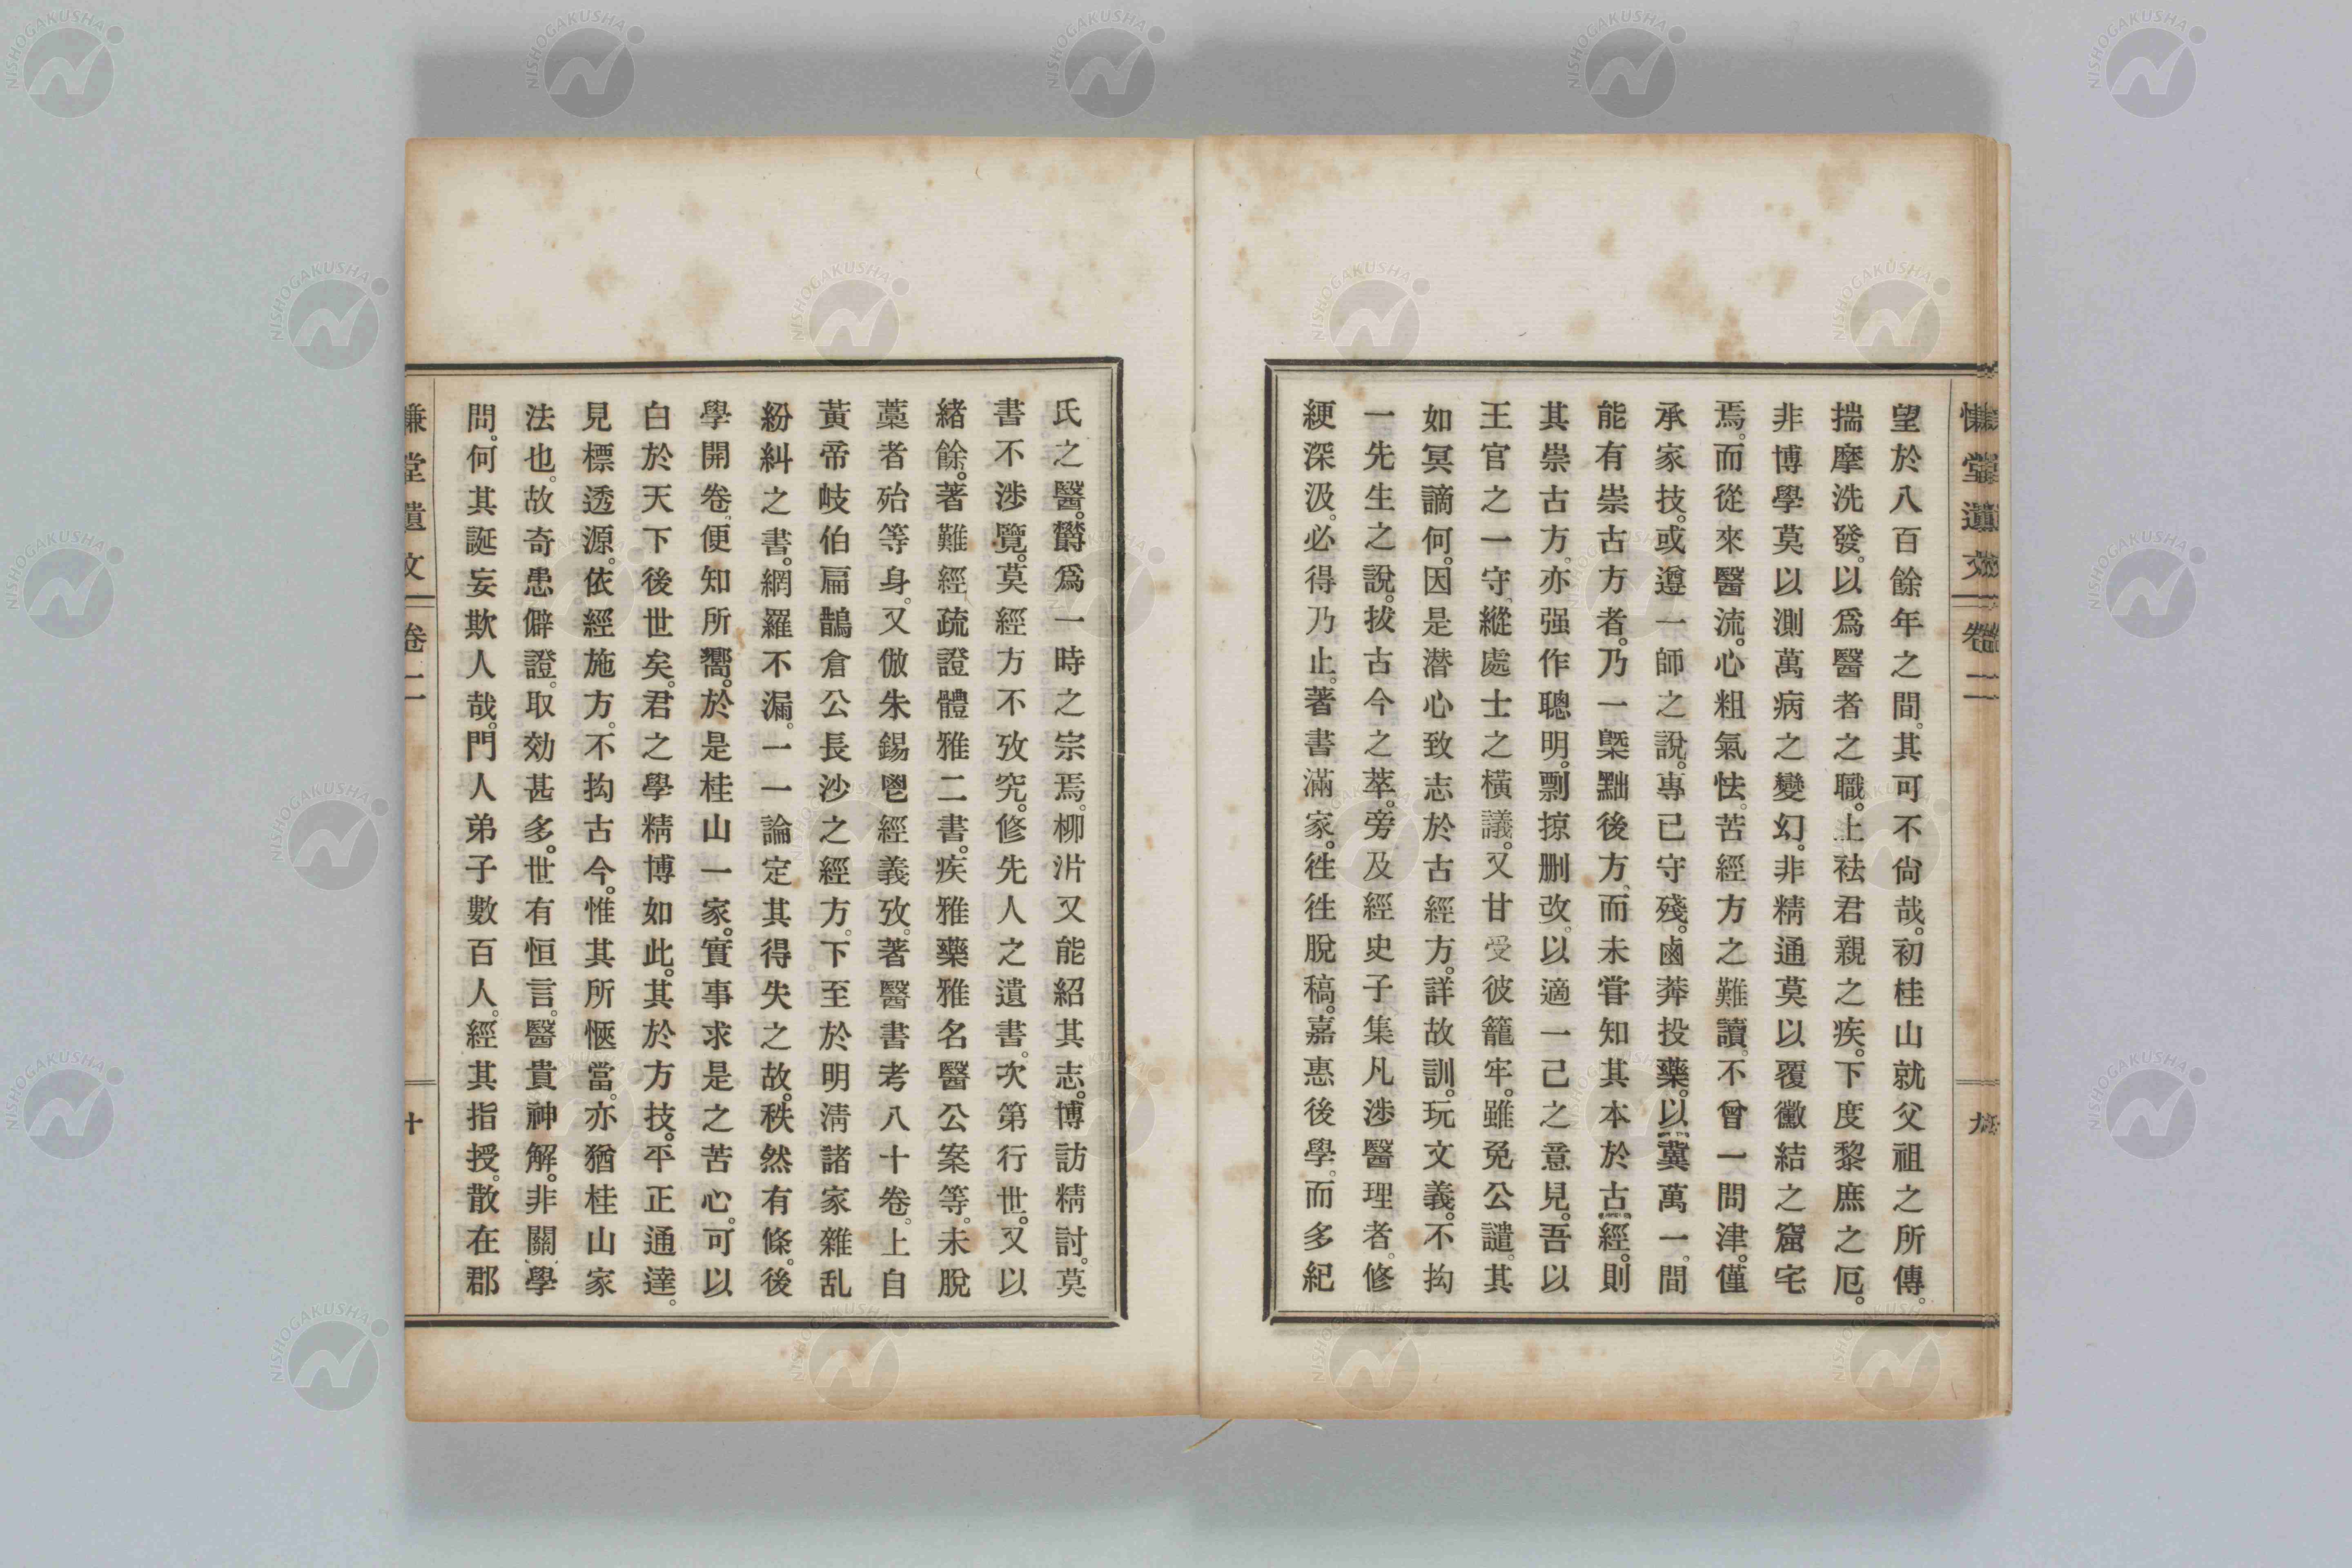 慊堂遺文 卷二 九
望於八百餘年之間。其可不尙哉。初桂山就父祖之所傳。
揣摩洗發。以爲醫者之職。上祛君親之疾。下度黎庶之厄。
非博學莫以測萬病之變幻。非精通莫以覆黴結之窟宅
焉。而從來醫流。心粗氣怯。苦經方之難讀。不曾一問津。僅
承家技。或遵一師之說。專己守殘。鹵莽投藥。以冀萬一。間
能有崇古方者。乃一槩黜後方、而未甞知其本於古經。則
其崇古方。亦强作聰明。剽掠刪改。以適一己之意見。吾以
王官之一守。縱處士之橫議。又甘受彼籠牢。雖免公譴。其
如冥謫何。因是潛心致志於古經方。詳故訓。玩文義。不拘
一先生之說。拔古今之萃。旁及經史子集凡涉醫理者。修
綆深汲。必得乃止。著書滿家。徃徃脫稿。嘉惠後學。而多紀
氏之醫。欝爲一時之宗焉。柳沜又能紹其志。博訪精討。莫
書不涉覽。莫經方不攷究。修先人之遺書。次第行世。又以
緒餘。著難經疏證體雅二書。疾雅藥雅名醫公案等。未脫
藁者殆等身。又倣朱錫鬯經義攷。著醫書考八十卷。上自
黃帝岐伯扁鵲倉公長沙之經方。下至於明淸諸家雜乱
紛糾之書。網羅不漏。一一論定其得失之故。秩然有條。後
學開卷。便知所嚮。於是桂山一家。實事求是之苦心。可以
白於天下後世矣。君之學精博如此。其於方技。平正通達。
見標透源。依經施方。不拘古今。惟其所愜當。亦猶桂山家
法也。故奇患僻證。取効甚多。世有恒言。醫貴神解。非關學
問。何其誕妄欺人哉。門人弟子數百人。經其指授。散在郡
慊堂遺文 卷二 十
NISHOGAKUSHA